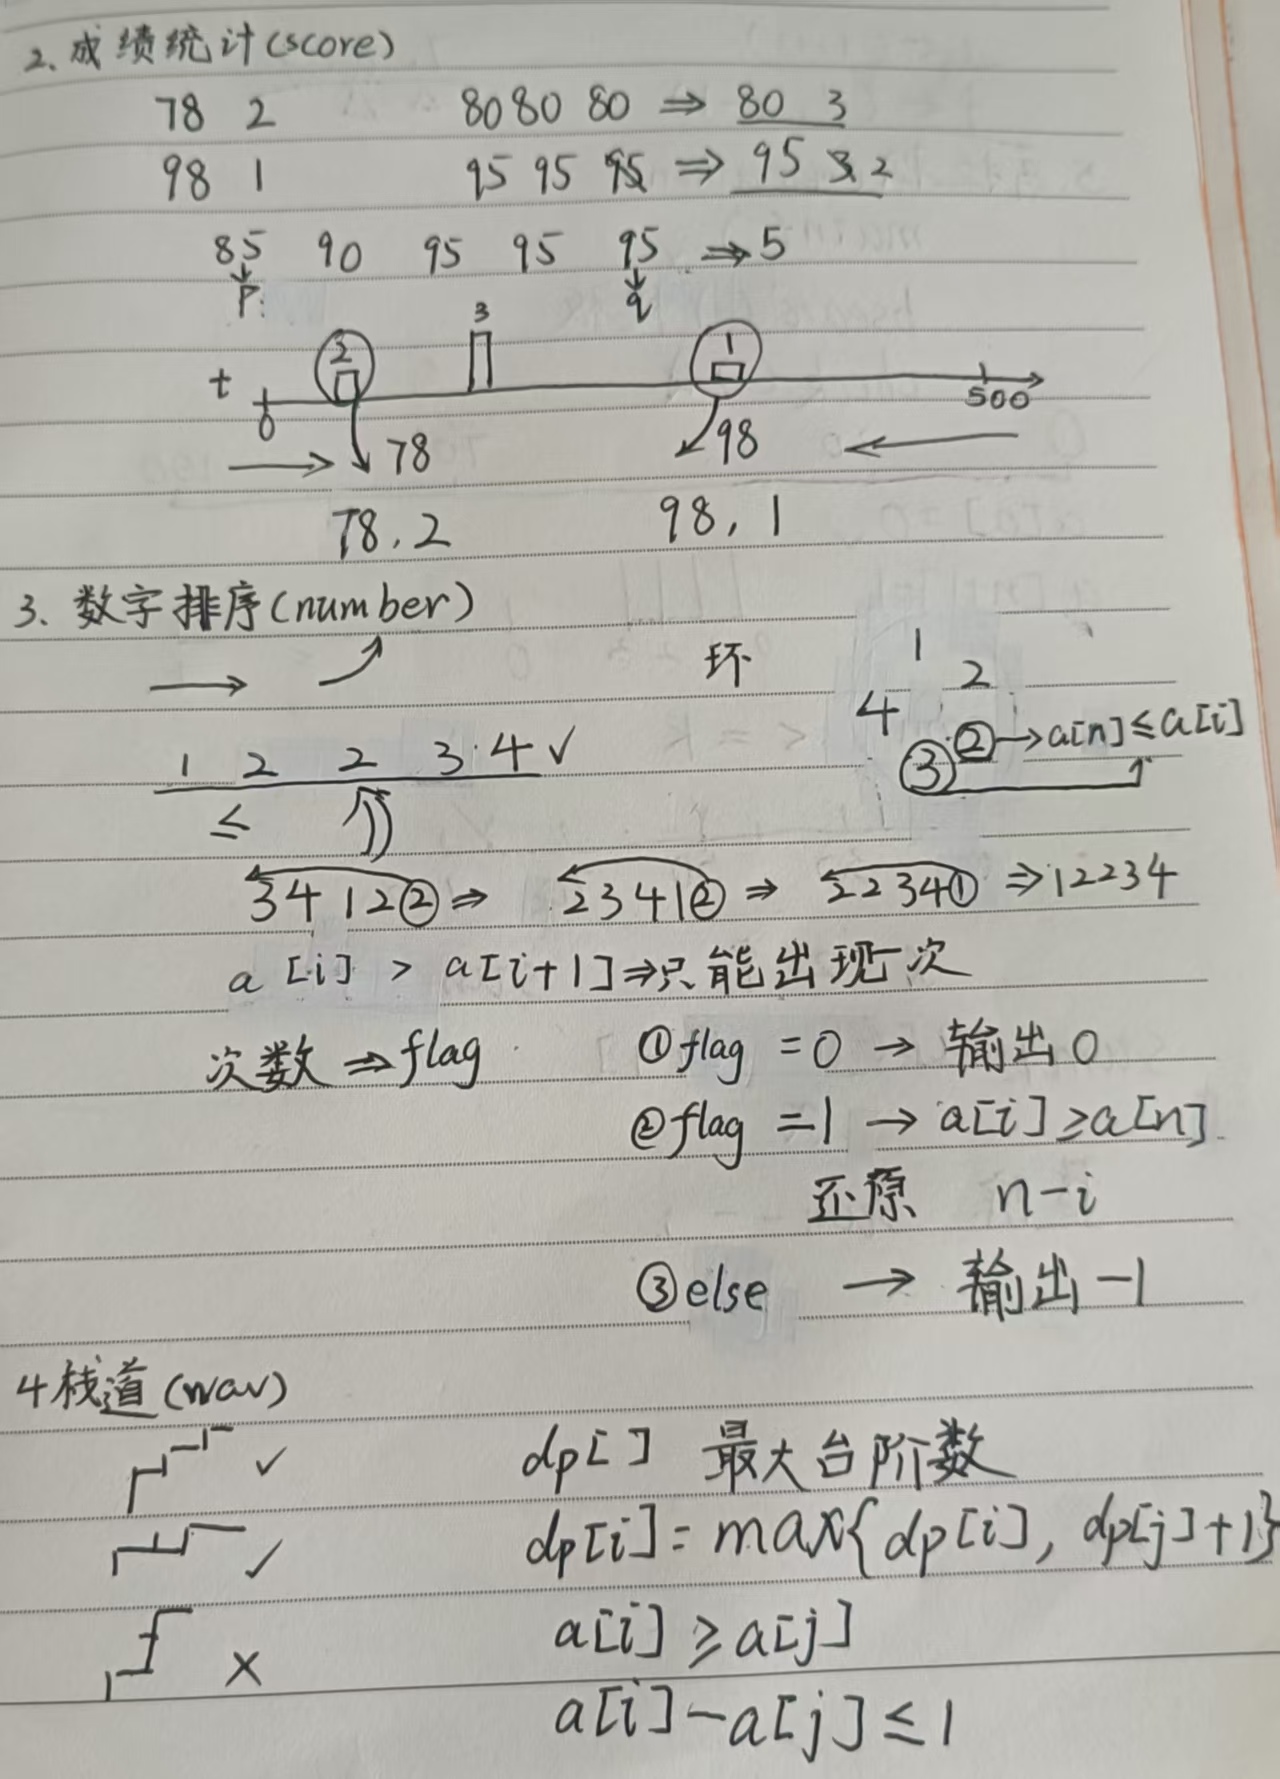 2. 成绩统计(score)
78 2 80 80 80 ⇒ 80 3
98 1 95 95 95 ⇒ 95 3 2
85 90 95 95 95 ⇒ 5
p q
2 3 1
t 0 500
78 98
78, 2 98, 1
3. 数字排序(number)
环 1
2
4
1 2 2 3 4 √ ② → a[n] ≤ a[i]
③
≤
3 4 1 2 ② ⇒ 2 3 4 1 ② ⇒ 2 2 3 4 ① ⇒ 1 2 2 3 4
a[i] > a[i+1] ⇒ 只能出现一次
次数 ⇒ flag ① flag = 0 → 输出 0
② flag = 1 → a[i] ≥ a[n]
还原 n-i
③ else → 输出 -1
4 栈道(wav)
√ dp[] 最大台阶数
√ dp[i] = max{dp[i], dp[j]+1}
× a[i] ≥ a[j]
a[i] - a[j] ≤ 1